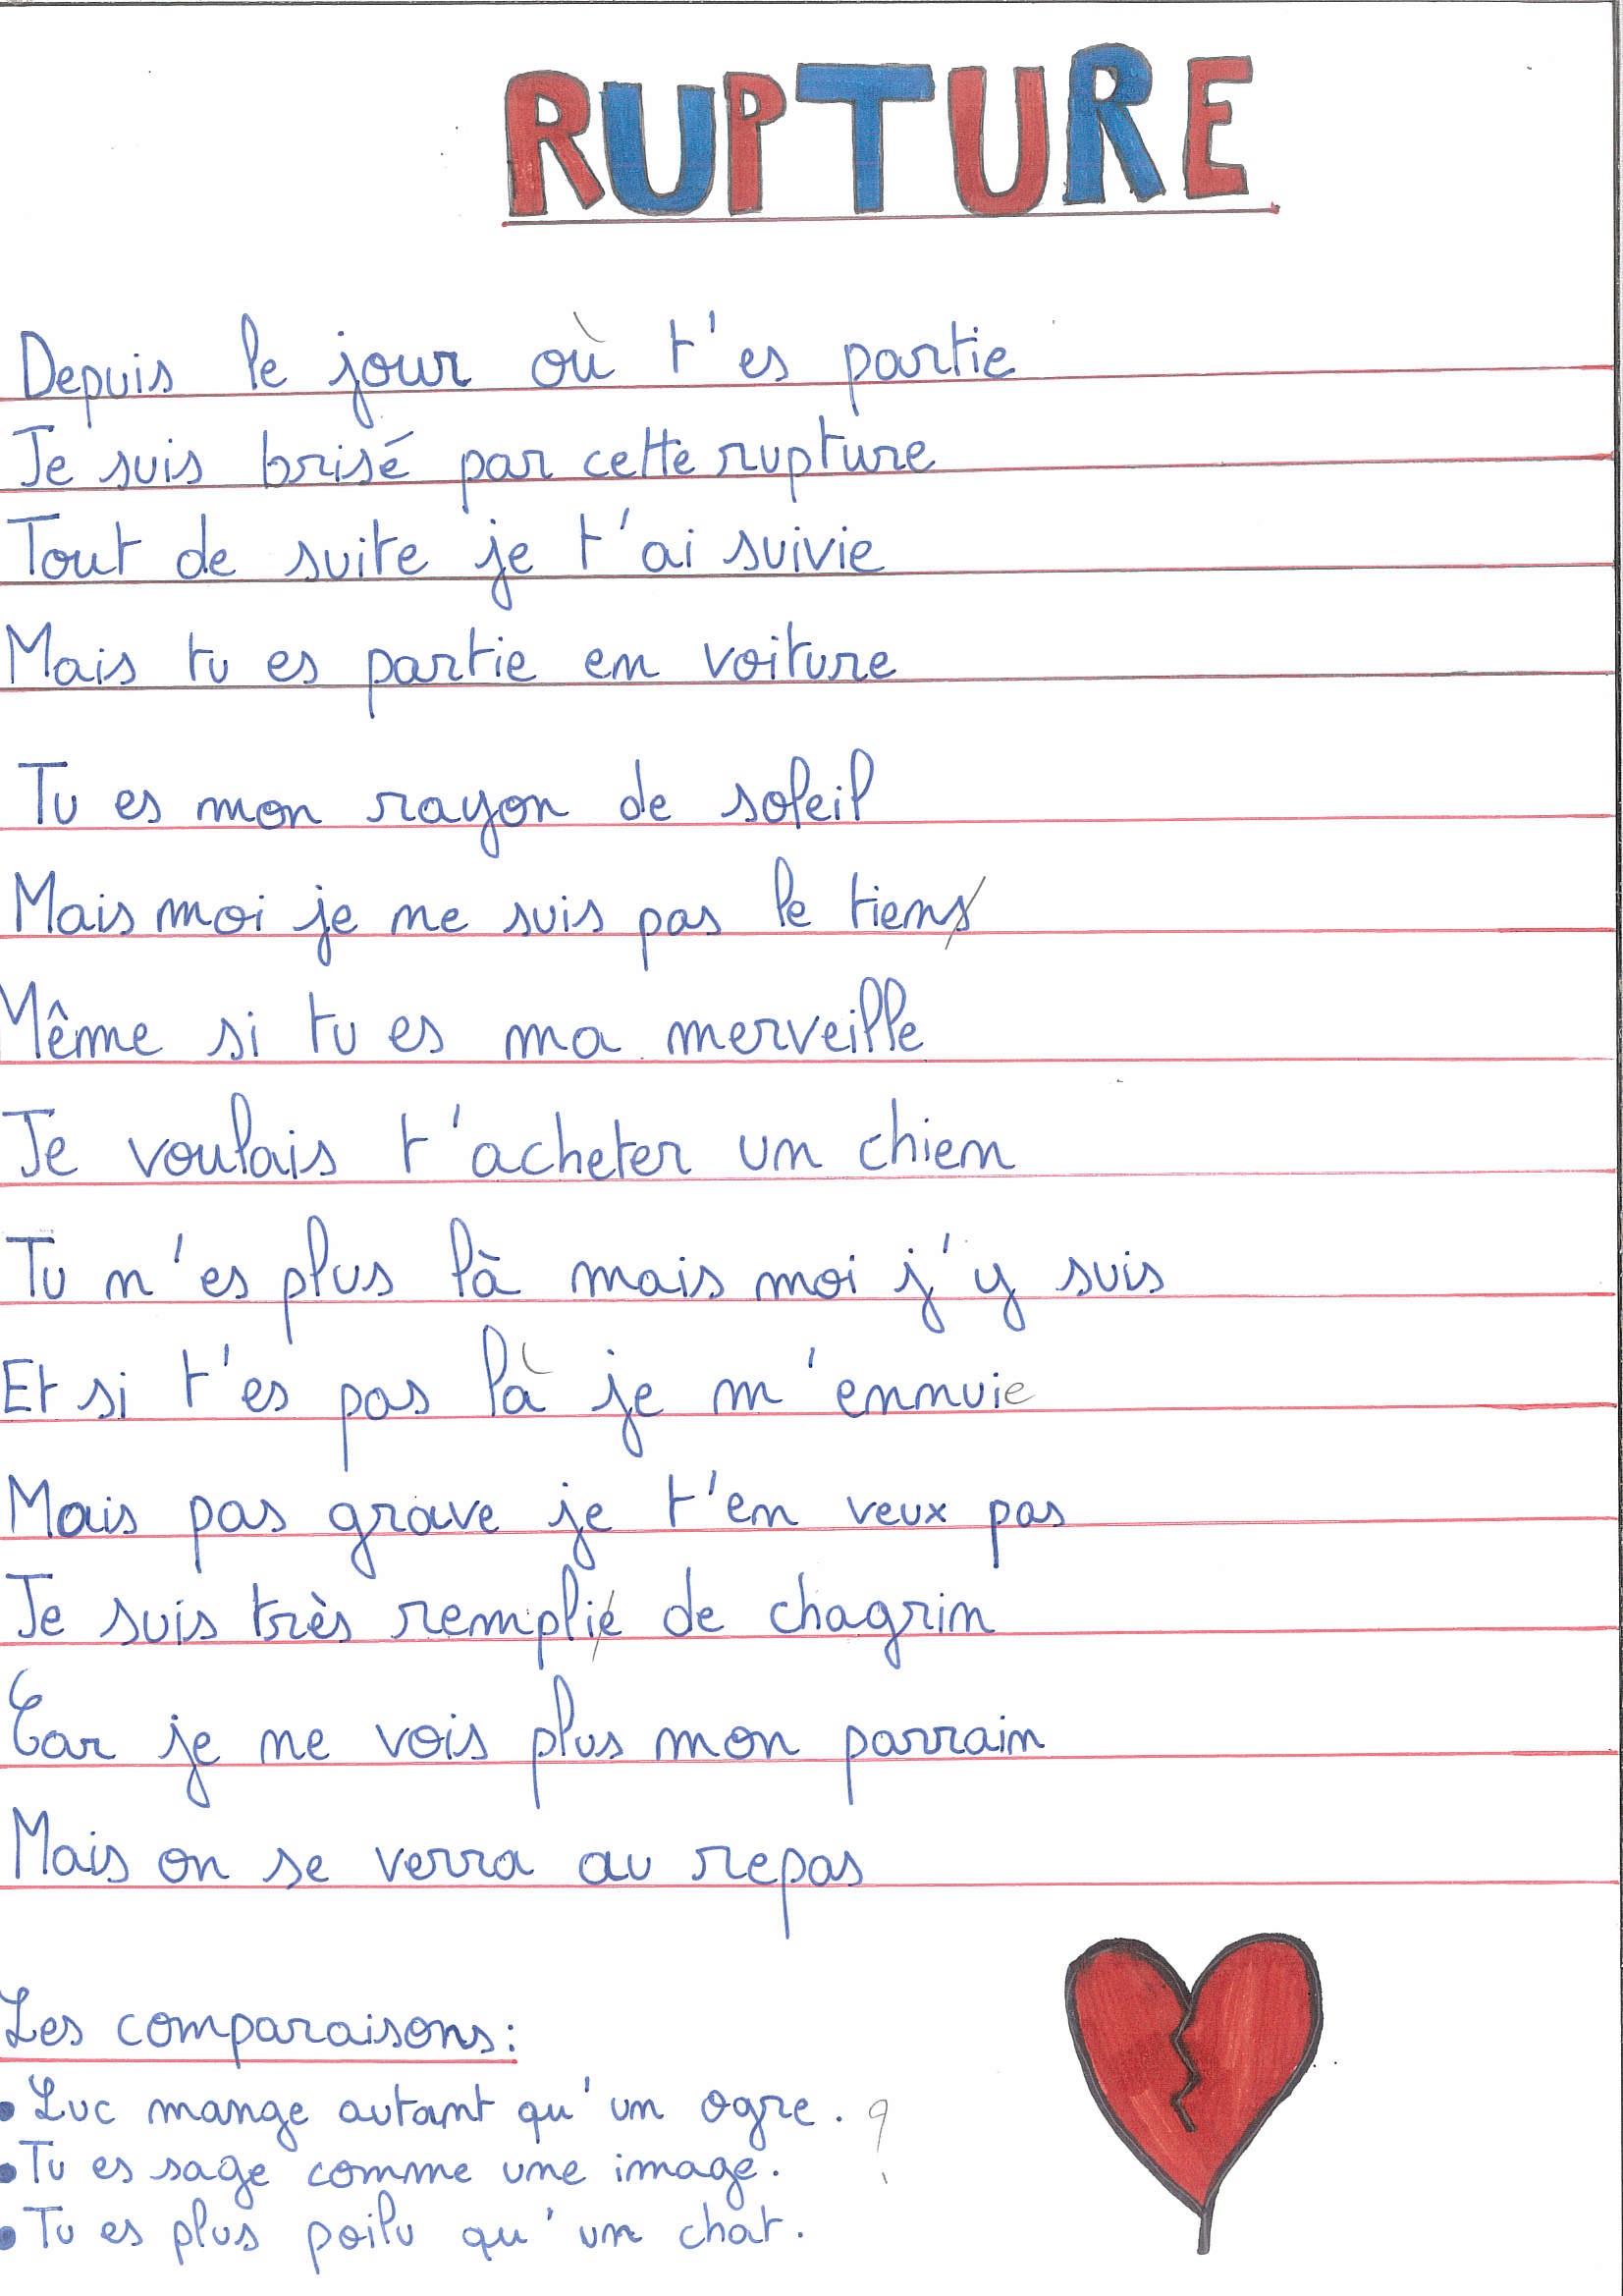 RUPTURE
Depuis le jour où t'es partie
Je suis brisé par cette rupture
Tout de suite je t'ai suivie
Mais tu es partie en voiture
Tu es mon rayon de soleil
Mais moi je ne suis pas le tiens
Même si tu es ma merveille
Je voulais t'acheter un chien
Tu n'es plus là mais moi j'y suis
Et si t'es pas là je m'ennuie
Mais pas grave je t'en veux pas
Je suis très remplie de chagrin
Car je ne vois plus mon parrain
Mais on se verra au repas
Les comparaisons:
• Luc mange autant qu'un ogre. ?
• Tu es sage comme une image.
• Tu es plus poilu qu'un chat.